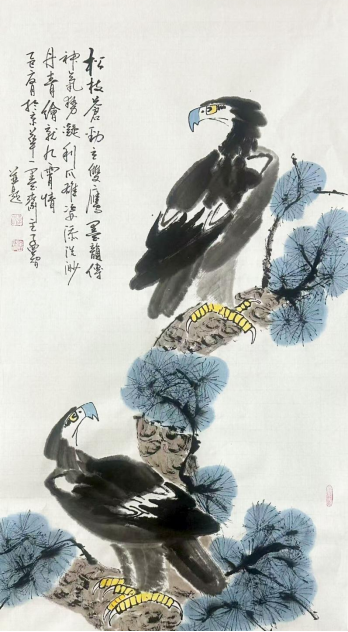 松枝蒼勁立雙鷹墨韻傳
神氣勢凝利爪雄姿添浩渺
丹青繪就九霄情
於京華一墨齋主